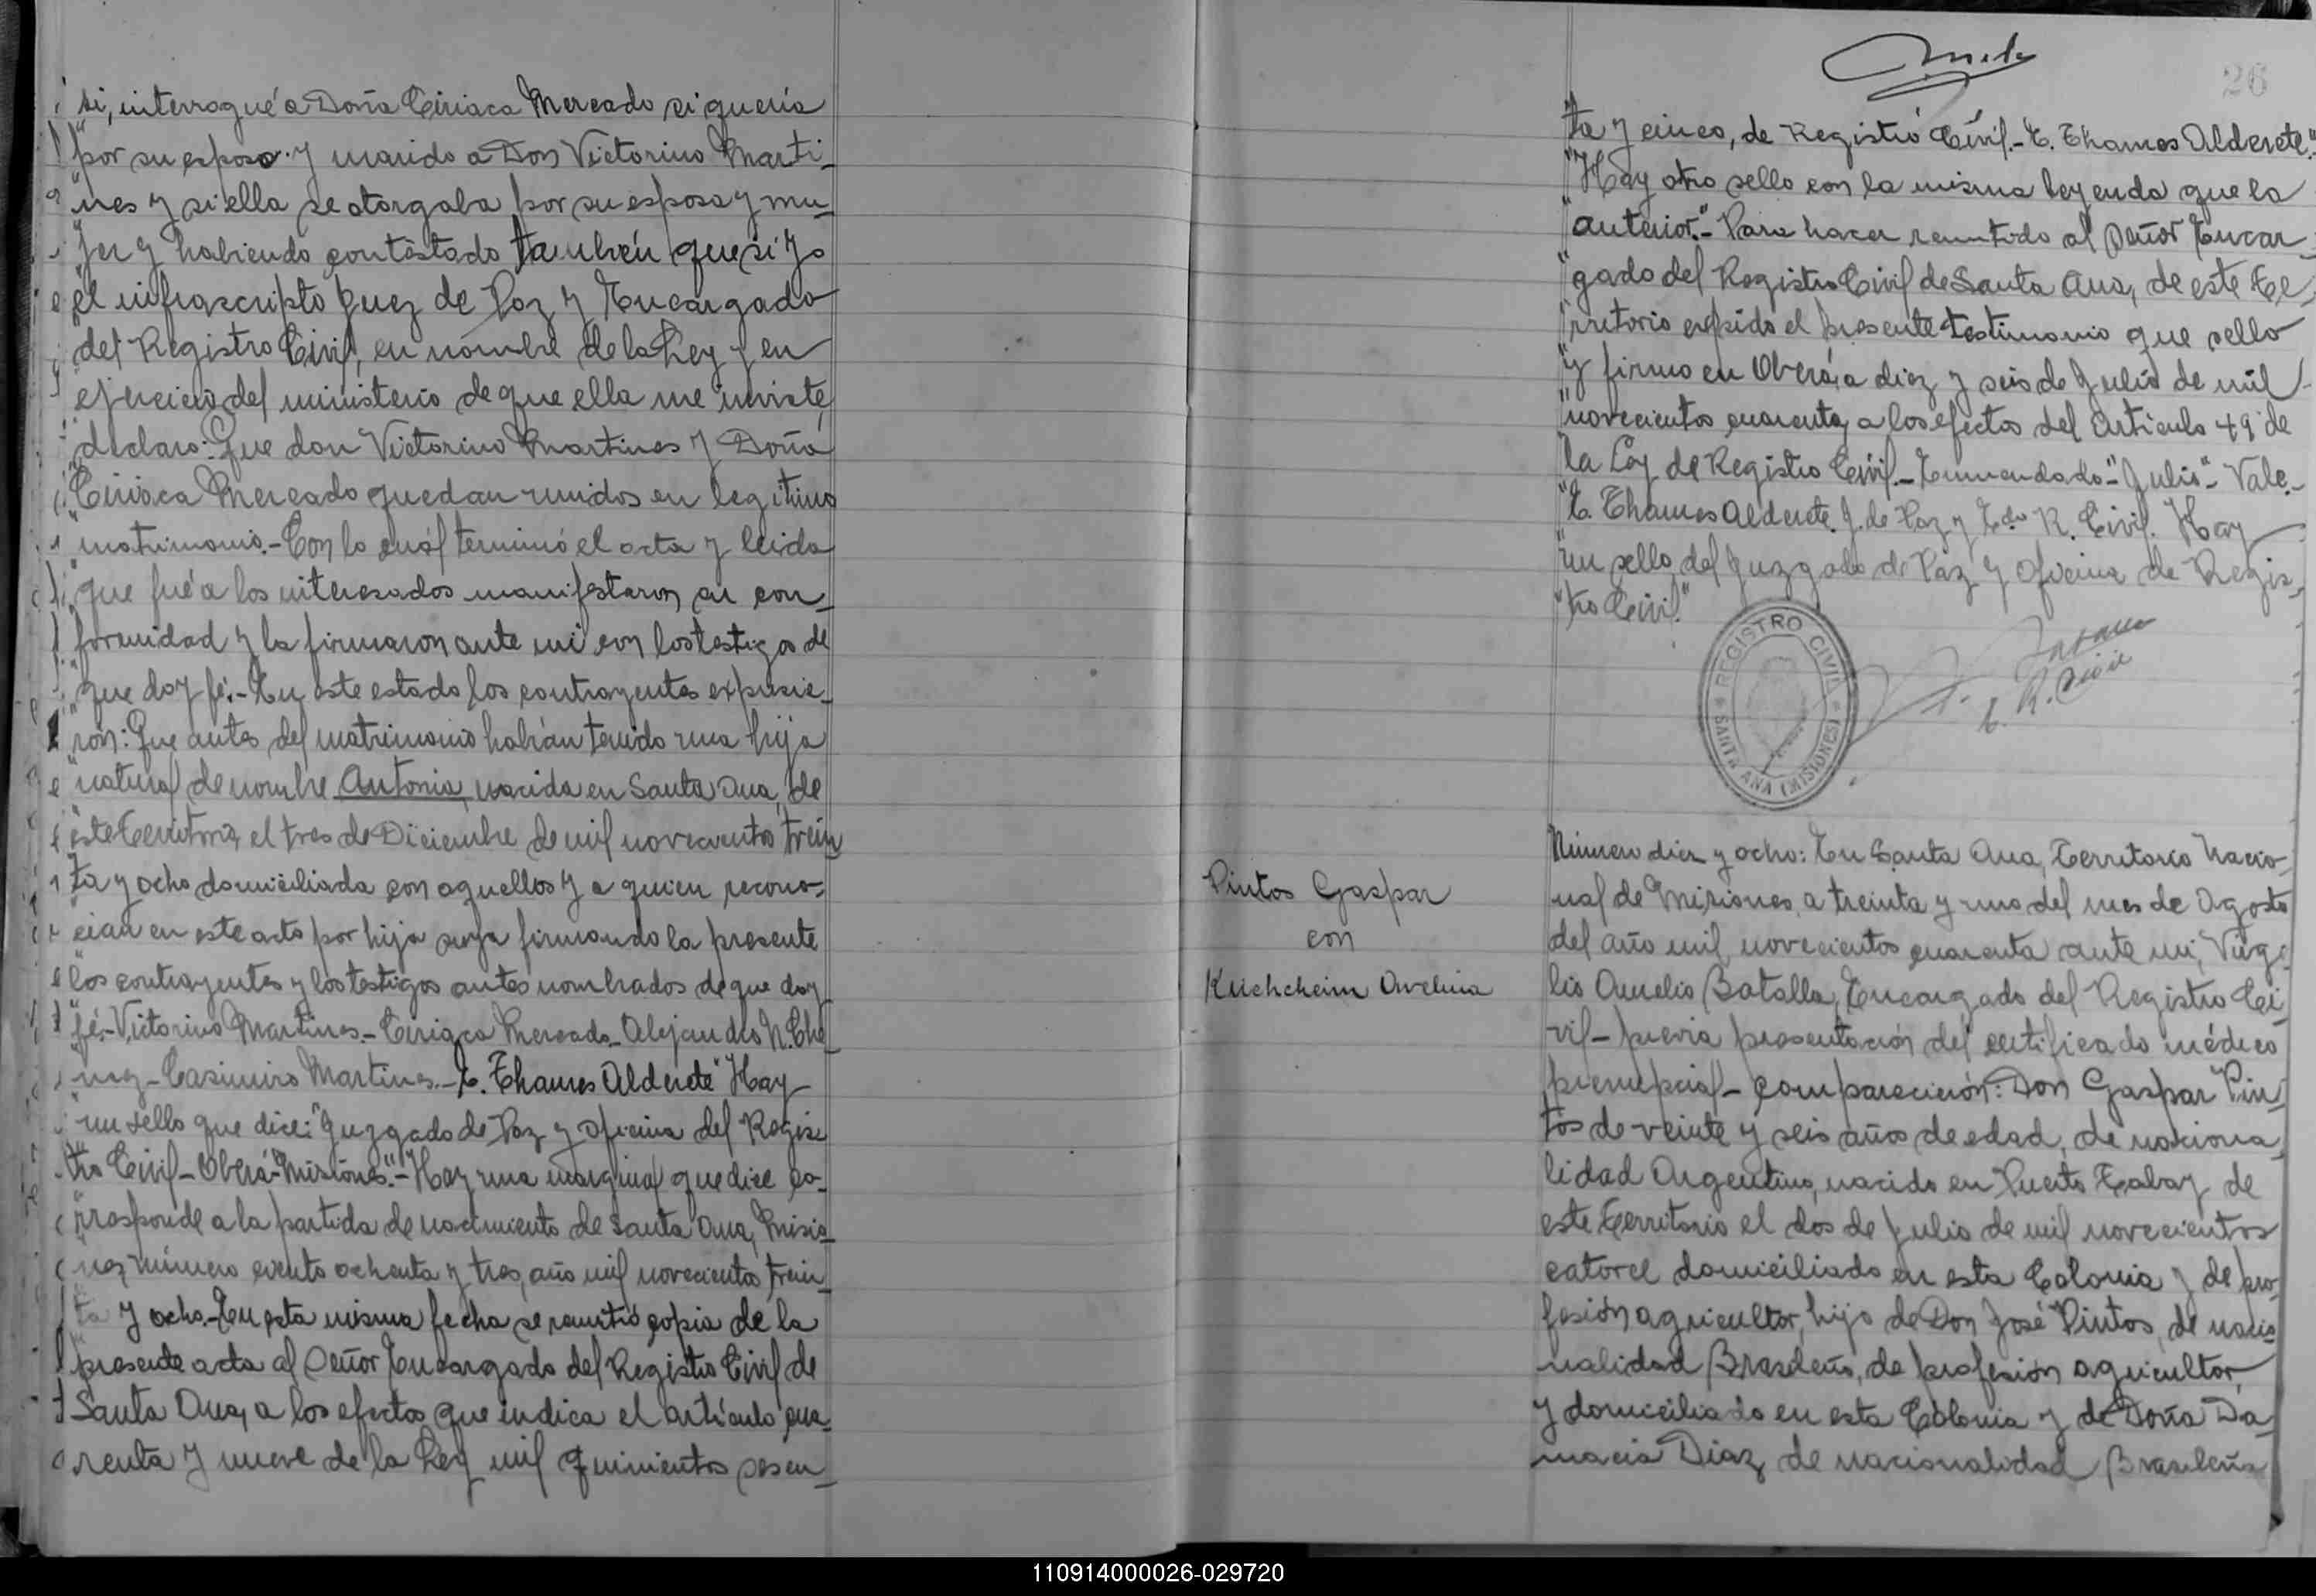 si, interrogué a Doña Ciriaca Mercado si quería
"por su esposo y marido a Don Victorino Marti-
"nes y si ella se otorgaba por su esposa y mu-
"jer y habiendo contestado también que si yo
"el infrascripto Juez de Paz y Encargado
"del Registro Civil, en nombre de la Ley y en
ejercicio del ministerio de que ella me inviste,
"declaro: Que don Victorino Martines y Doña
"Ciriaca Mercado quedan unidos en legitimo
"matrimonio.- Con lo cuál terminó el acta y leida
"que fué a los interesados manifestaron su con-
"formidad y la firmaron ante mi con los testigos de
"que doy fé.- En este estado los contrayentes expusie-
"ron: Que antes del matrimonio habían tenido una hija
"natural de nombre Antonia, nacida en Santa Ana, de
"este Territorio, el tres de Diciembre de mil novecientos trein
"ta y ocho domiciliada con aquellos y a quien recono-
"cian en este acto por hija suya firmando la presente
"los contrayentes y los testigos antes nombrados de que doy
"fé.- Victorino Martines.- Ciriaca Mercado.- Alejandro N. Che
"nez- Casimiro Martines.- E. Thames Alderete" Hay
"un sello que dice: "Juzgado de Paz y Oficina del Regis-
"tro Civil- Oberá- Misiones".- Hay una marginal que dice co-
"rresponde a la partida de nacimiento de Santa Ana, Misio-
"nes, número ciento ochenta y tres, año mil novecientos trein-
"ta y ocho.- En esta misma fecha se remitió copia de la
"presente acta al Señor Encargado del Registro Civil de
"Santa Ana, a los efectos que indica el artículo cua-
renta y nueve de la Ley mil quinientos sesen-
26
"ta y cinco, de Registro Civil.- E. Thames Alderete."
"Hay otro sello con la misma leyenda que la
"anterior".- Para hacer remitido al Señor Encar-
"gado del Registro Civil de Santa Ana, de este Te-
"rritorio expido el presente testimonio que sello
"y firmo en Oberá, a diez y seis de Julio de mil
"novecientos cuarenta, a los efectos del Artículo 49 de
"la Ley de Registro Civil.- Enmendado-"Julio"- Vale.-
"E. Thames Alderete J. de Paz y Edo R. Civil. Hay
"un sello del Juzgado de Paz y Oficina de Regis-
"tro Civil."
REGISTRO CIVIL
SANTA ANA (MISIONES)
E. R. Civil
Pintos Gaspar
con
Kuchcheim Avelina
Número diez y ocho: En Santa Ana, Territorio Nacio-
nal de Misiones, a treinta y uno del mes de Agosto
del año mil novecientos cuarenta ante mi, Virgi-
lio Aurelio Batalla, Encargado del Registro Ci-
vil- previa presentación del certificado médico
prenupcial- comparecieron: Don Gaspar Pin-
tos de veinte y seis años de edad, de naciona-
lidad Argentino, nacido en Puerto Tabay de
este Territorio el dos de Julio de mil novecientos
catorce domiciliado en esta Colonia y de pro-
fesión agricultor, hijo de Don José Pintos, de nacio-
nalidad Brasileño, de profesión agricultor,
y domiciliado en esta Colonia y de Doña Da-
macia Diaz, de nacionalidad Brasileña